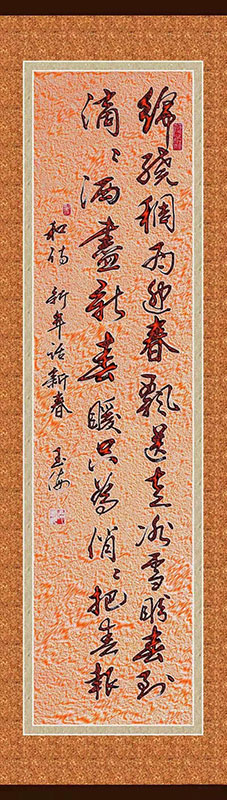 綿繞稠雨迎春飄送走冰雪盼春到
滴滴洒盡新春暖只為俏俏把春報
和诗 新年话新春 玉海